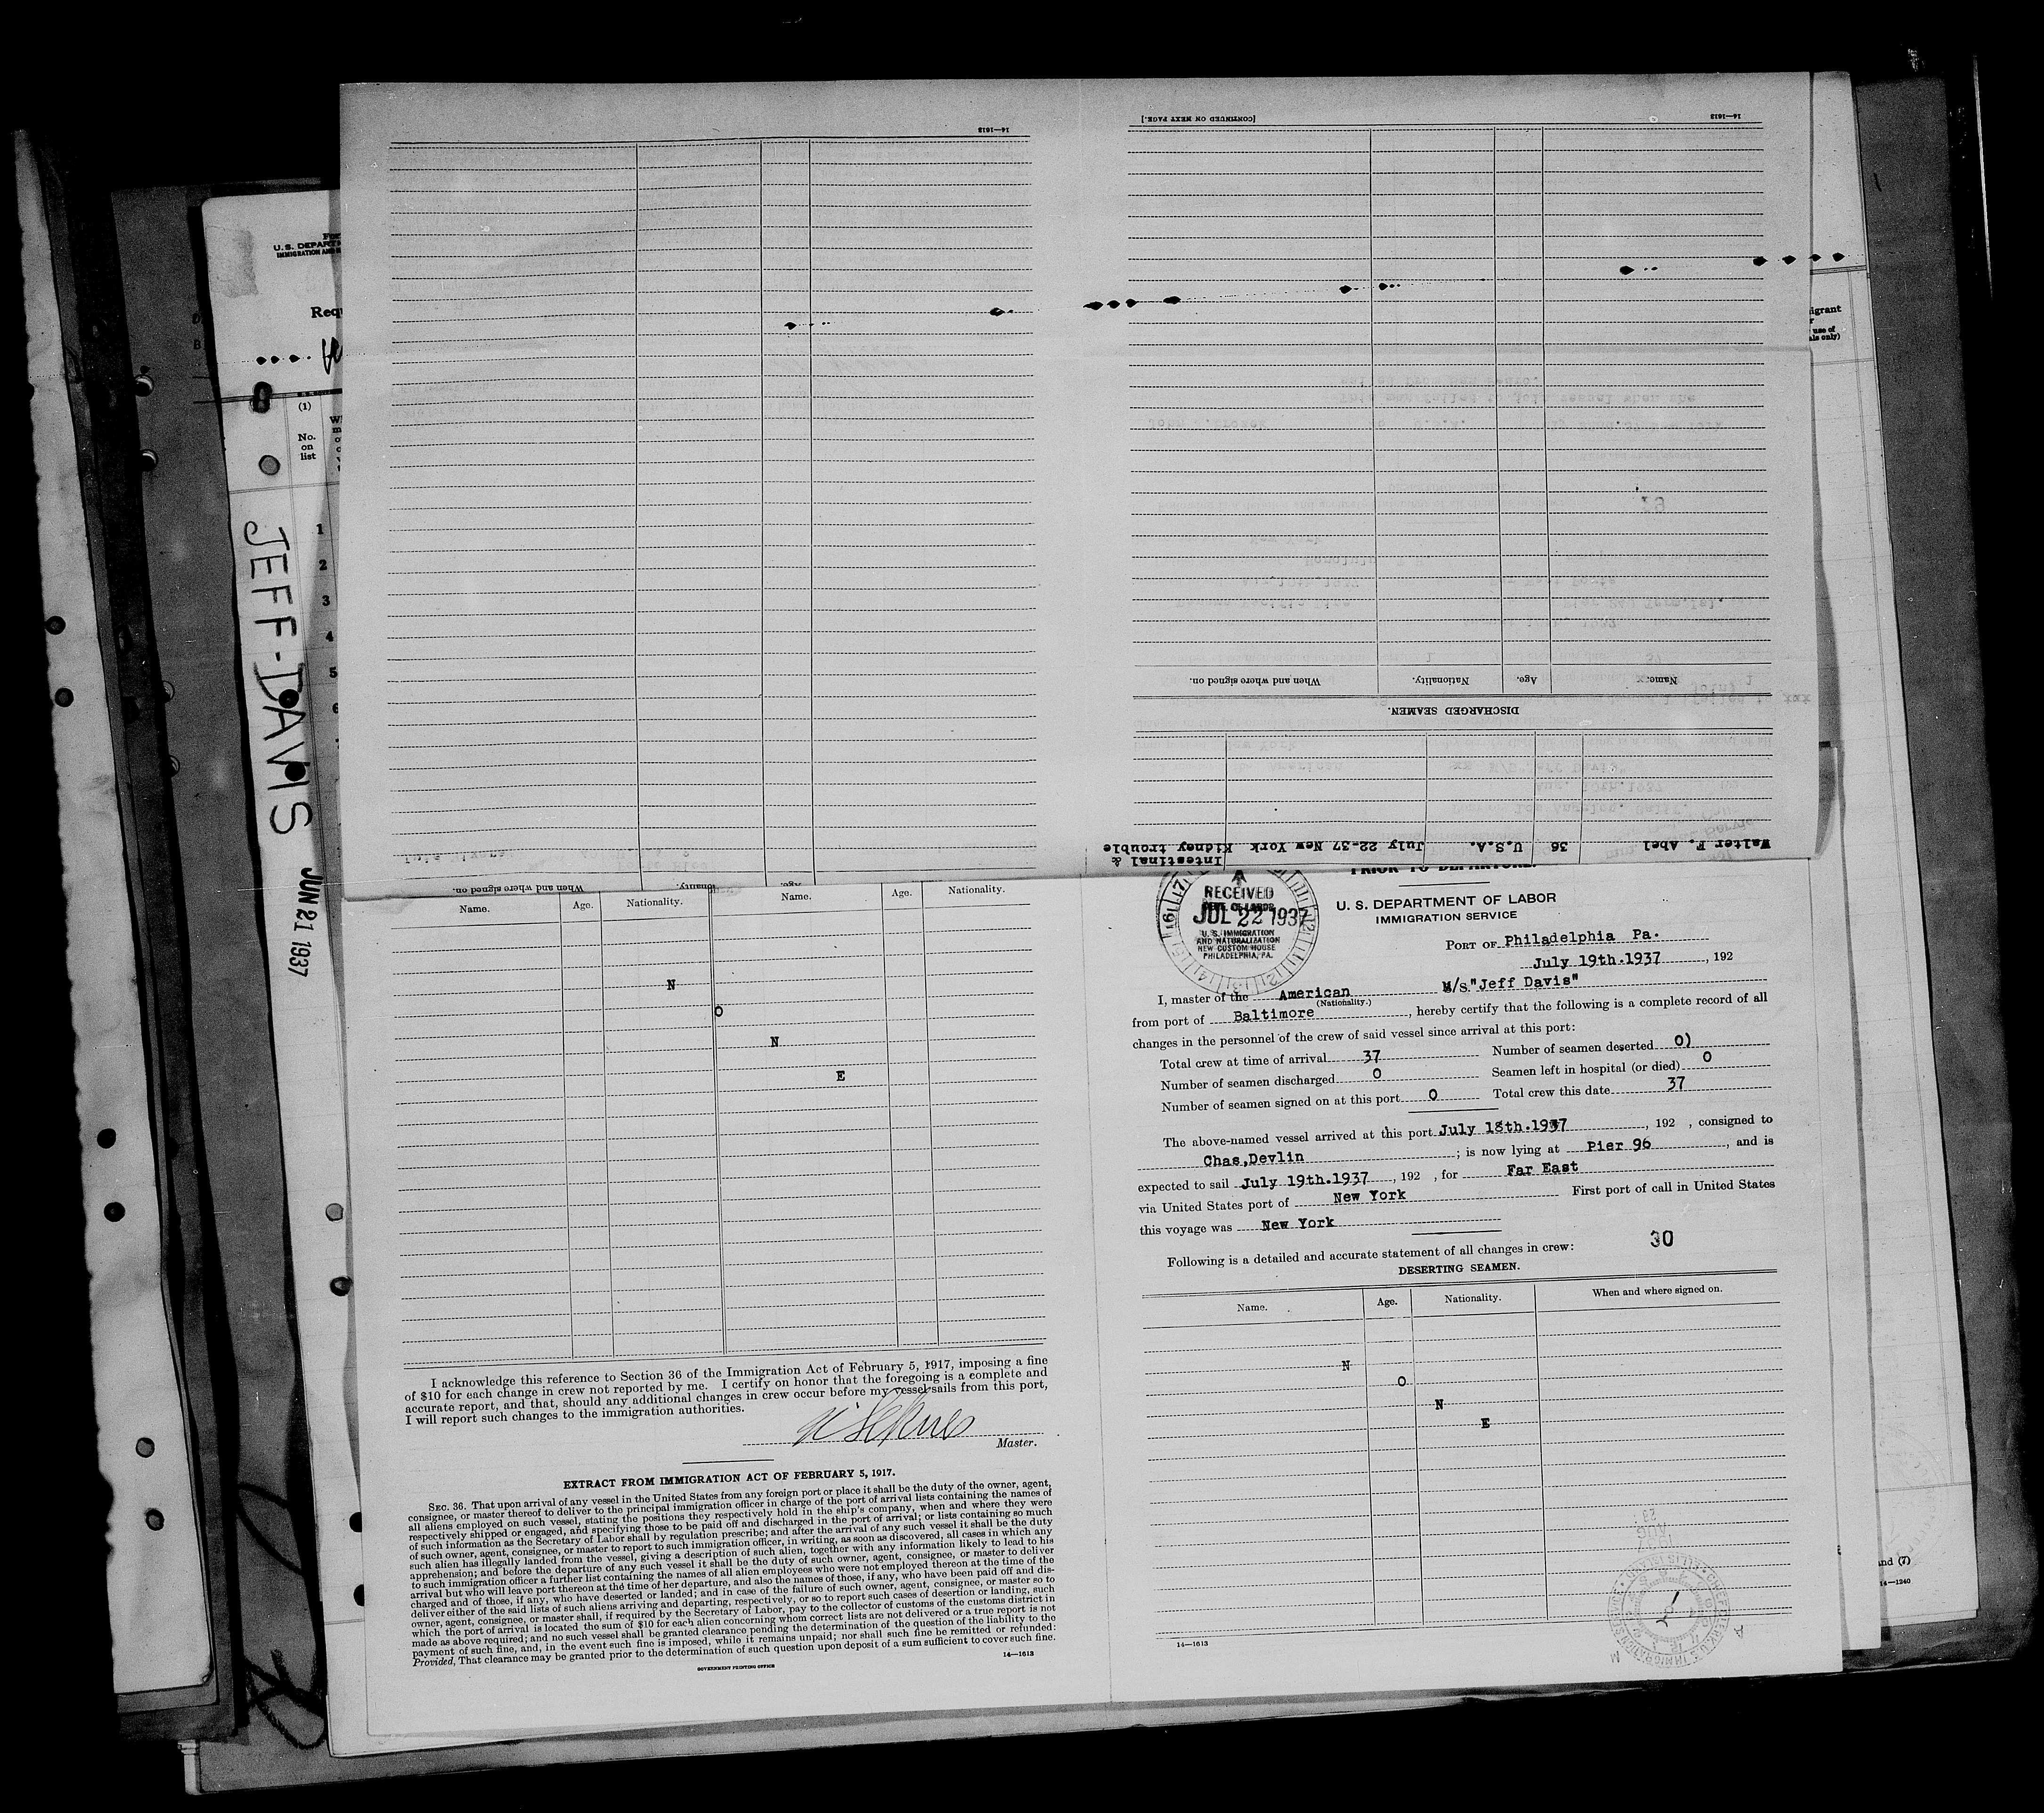 JEFF-DAVIS
JUN 21 1937
U. S. DEPART
IMMIGRATION AND
Requ
(1)
No.
on
list
1
2
3
4
5
6
14—1613
[CONTINUED ON NEXT PAGE.]
14—1613
When and where signed on.
Nationality.
Age.
Name.
DISCHARGED SEAMEN.
Walter F. Abel 36 U.S.A. July 22-37 New York Kidney trouble
Intestinal &
When and where signed on.
Age.
Name. Age. Nationality. Name. Age. Nationality.
N
O
N
E
I acknowledge this reference to Section 36 of the Immigration Act of February 5, 1917, imposing a fine
of $10 for each change in crew not reported by me. I certify on honor that the foregoing is a complete and
accurate report, and that, should any additional changes in crew occur before my vessel sails from this port,
I will report such changes to the immigration authorities.
Master.
EXTRACT FROM IMMIGRATION ACT OF FEBRUARY 5, 1917.
SEC. 36. That upon arrival of any vessel in the United States from any foreign port or place it shall be the duty of the owner, agent,
consignee, or master thereof to deliver to the principal immigration officer in charge of the port of arrival lists containing the names of
all aliens employed on such vessel, stating the positions they respectively hold in the ship's company, when and where they were
respectively shipped or engaged, and specifying those to be paid off and discharged in the port of arrival; or lists containing so much
of such information as the Secretary of Labor shall by regulation prescribe; and after the arrival of any such vessel it shall be the duty
of such owner, agent, consignee, or master to report to such immigration officer, in writing, as soon as discovered, all cases in which any
such alien has illegally landed from the vessel, giving a description of such alien, together with any information likely to lead to his
apprehension; and before the departure of any such vessel it shall be the duty of such owner, agent, consignee, or master to deliver
to such immigration officer a further list containing the names of all alien employees who were not employed thereon at the time of the
arrival but who will leave port thereon at the time of her departure, and also the names of those, if any, who have been paid off and dis-
charged and of those, if any, who have deserted or landed; and in case of the failure of such owner, agent, consignee, or master so to
deliver either of the said lists of such aliens arriving and departing, respectively, or so to report such cases of desertion or landing, such
owner, agent, consignee, or master shall, if required by the Secretary of Labor, pay to the collector of customs of the customs district in
which the port of arrival is located the sum of $10 for each alien concerning whom correct lists are not delivered or a true report is not
made as above required; and no such vessel shall be granted clearance pending the determination of the question of the liability to the
payment of such fine, and, in the event such fine is imposed, while it remains unpaid; nor shall such fine be remitted or refunded:
Provided, That clearance may be granted prior to the determination of such question upon deposit of a sum sufficient to cover such fine.
GOVERNMENT PRINTING OFFICE
14—1613
PRIOR TO DEPARTURE.
RECEIVED
DEPT. OF LABOR
JUL 22 1937
U. S. IMMIGRATION
AND NATURALIZATION
NEW CUSTOM HOUSE
PHILADELPHIA, PA.
U. S. DEPARTMENT OF LABOR
IMMIGRATION SERVICE
PORT OF Philadelphia Pa.
July 19th.1937, 192
I, master of the American M/S."Jeff Davis"
(Nationality.)
from port of Baltimore, hereby certify that the following is a complete record of all
changes in the personnel of the crew of said vessel since arrival at this port:
Total crew at time of arrival 37 Number of seamen deserted 0)
Number of seamen discharged 0 Seamen left in hospital (or died) 0
Number of seamen signed on at this port 0 Total crew this date 37
The above-named vessel arrived at this port July 18th.1937, 192 , consigned to
Chas,Devlin ; is now lying at Pier 96, and is
expected to sail July 19th.1937, 192 , for Far East
via United States port of New York First port of call in United States
this voyage was New York
30
Following is a detailed and accurate statement of all changes in crew:
DESERTING SEAMEN.
Name. Age. Nationality. When and where signed on.
N
O
N
E
14—1613
igrant
use of
als only)
and (7)
14—1240